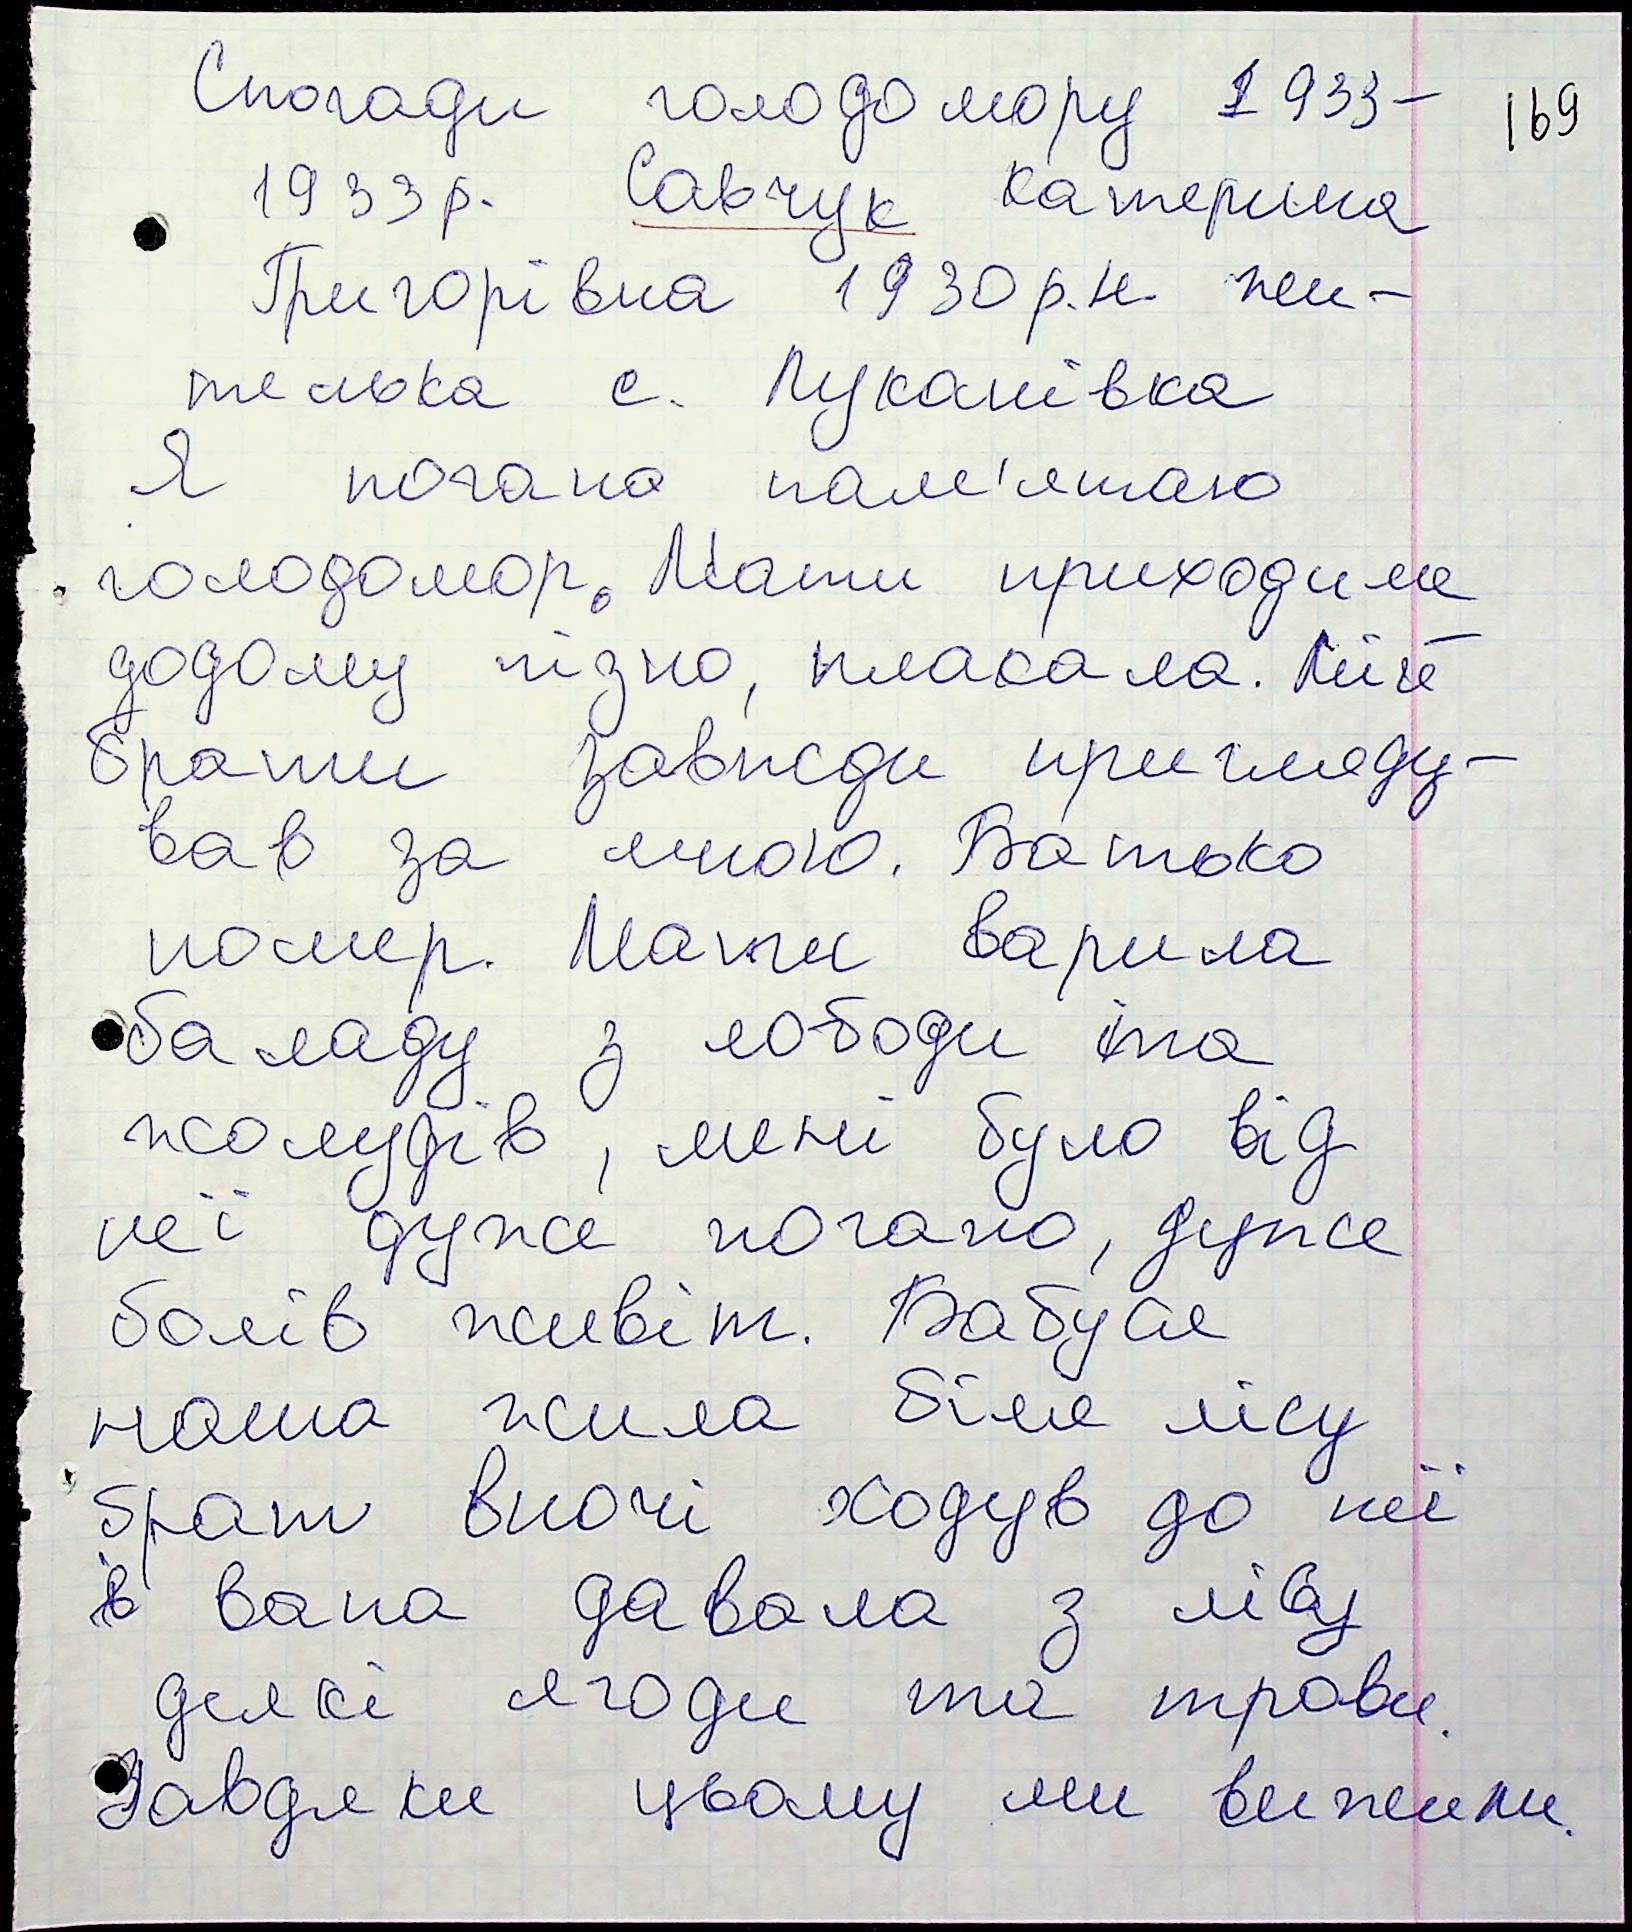 Спогади голодомору 1933-
169
1933р. Савчук Катерина
Григорівна 1930р.н. жи-
телька с. Луканівка
Я погано пам'ятаю
голодомор. Мати приходила
додому пізно, плакала. Мій
брати завжди пригляду-
вав за мною. Батько
помер. Мати варила
баладу з лободи та
жолудів, мені було від
неї дуже погано, дуже
болів живіт. Бабуся
наша жила біля лісу
брат вночі ходув до неї
і вона давала з лісу
деякі ягоди та трави.
Завдяки цьому ми вижили.